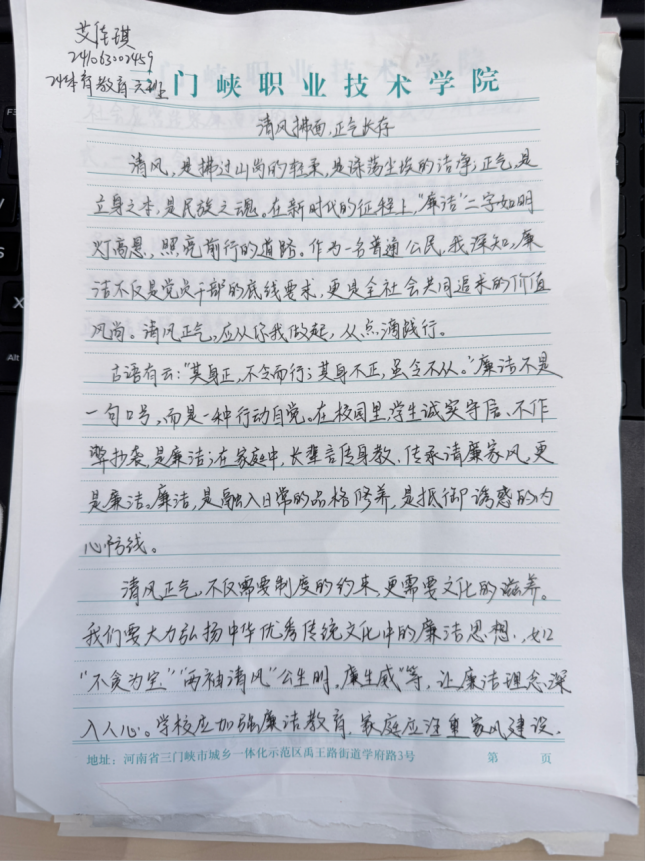 艾佳琪
241063002459
24体育教育六班
门峡职业技术学院
清风拂面,正气长存
清风,是拂过山岗的轻柔,是涤荡尘埃的洁净;正气,是
立身之本,是民族之魂。在新时代的征程上,“廉洁”二字如明
灯高悬,照亮前行的道路。作为一名普通公民,我深知,廉
洁不仅是党员干部的底线要求,更是全社会共同追求的价值
风尚。清风正气,应从你我做起,从点滴践行。
古语有云:“其身正,不令而行;其身不正,虽令不从。”廉洁不是
一句口号,而是一种行动自觉。在校园里,学生诚实守信、不作
弊抄袭,是廉洁;在家庭中,长辈言传身教、传承清廉家风,更
是廉洁。廉洁,是融入日常的品格修养,是抵御诱惑的内
心防线。
清风正气,不仅需要制度的约束,更需要文化的滋养。
我们要大力弘扬中华优秀传统文化中的廉洁思想,如
“不贪为宝”“两袖清风”“公生明,廉生威”等,让廉洁理念深
入人心。学校应加强廉洁教育,家庭应注重家风建设,
地址:河南省三门峡市城乡一体化示范区禹王路街道学府路3号 第 页